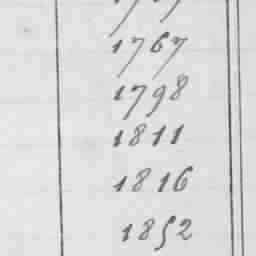 1767
1798
1811
1816
1852